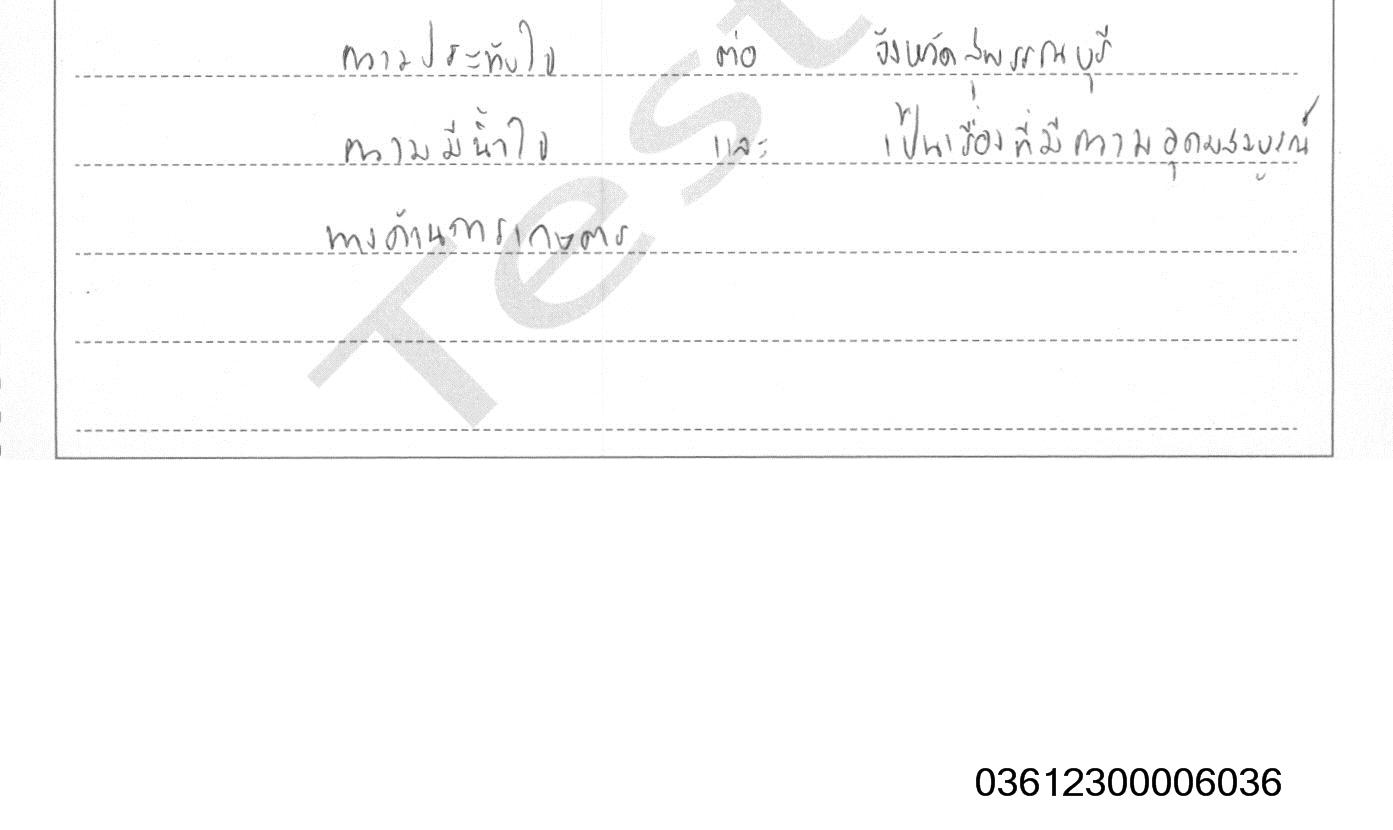 ความประทับใจ ต่อ จังหวัดสุพรรณบุรี
ความมีน้ำใจ และ เป็นเรื่องที่มีความอุดมสมบูรณ์
ทางด้านการเกษตร
Test
03612300006036